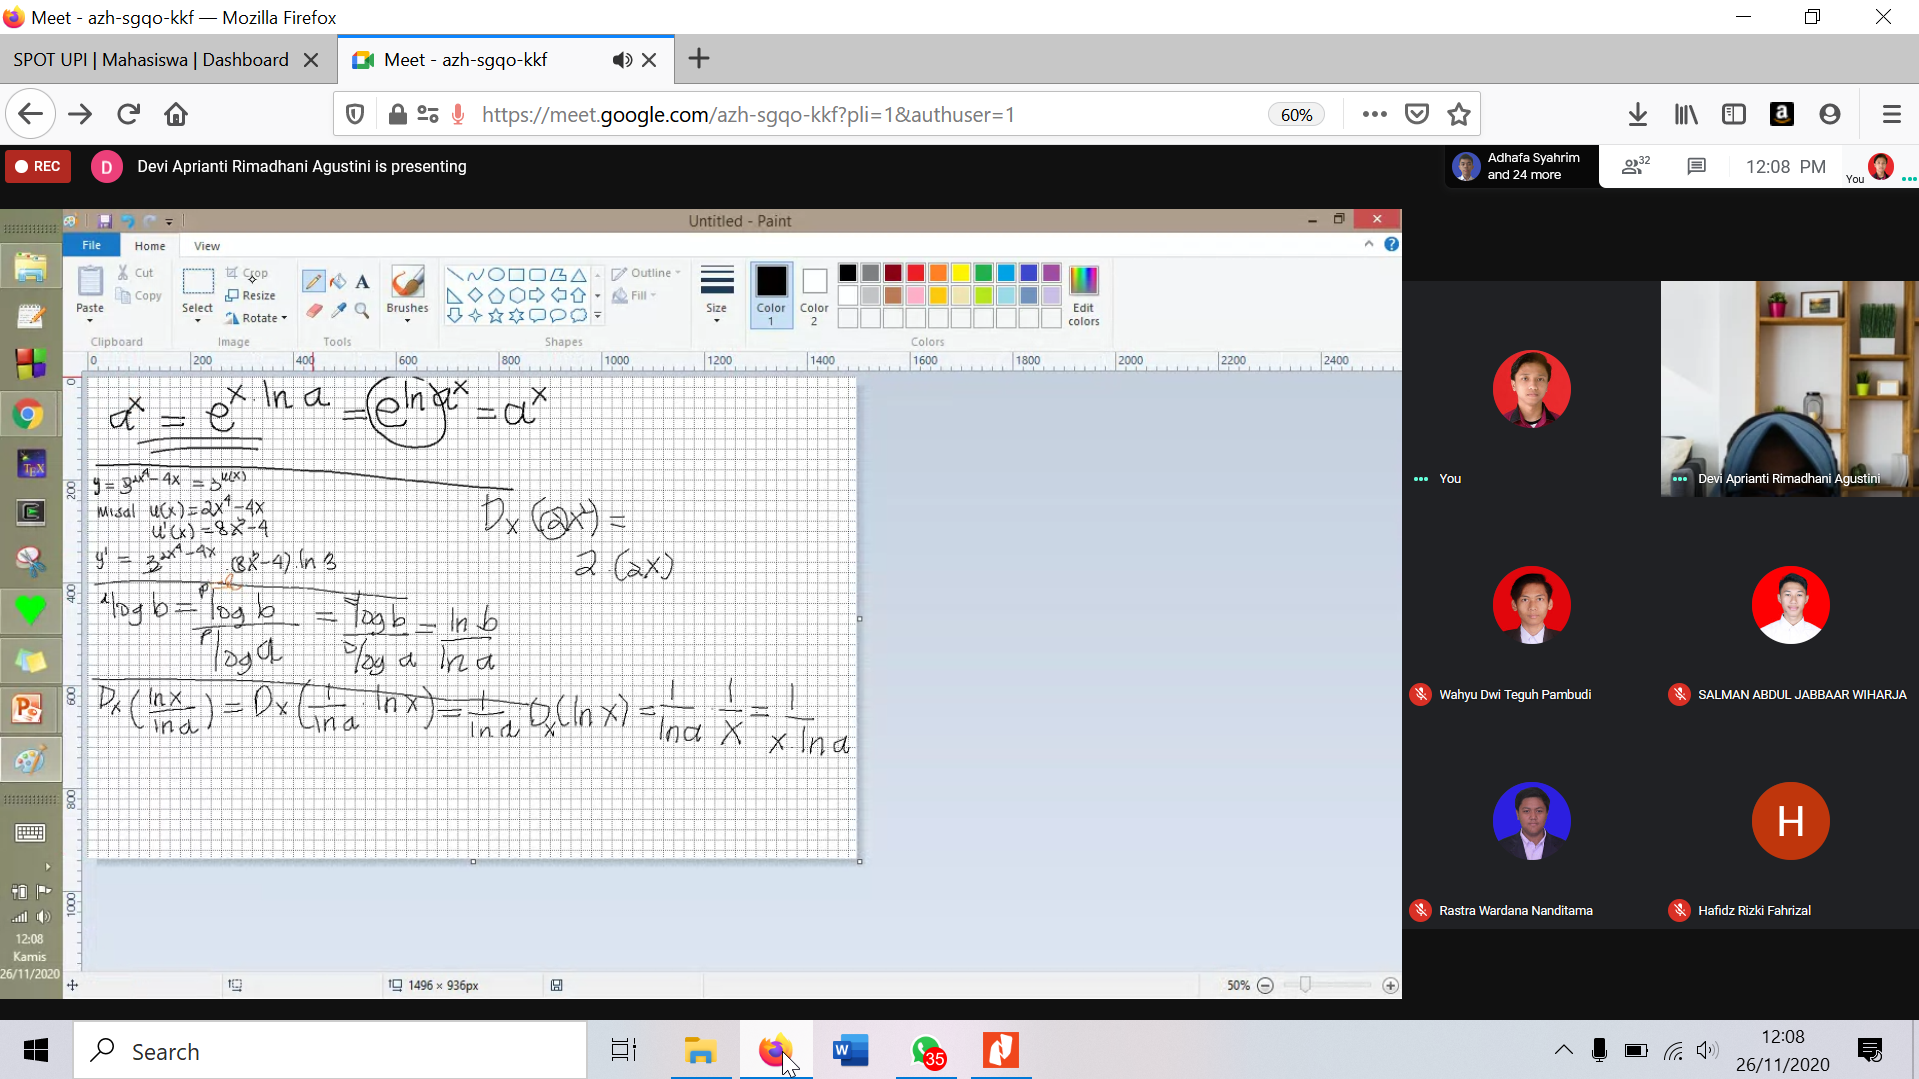 Meet - azh-sgqo-kkf — Mozilla Firefox
SPOT UPI | Mahasiswa | Dashboard
Meet - azh-sgqo-kkf
https://meet.google.com/azh-sgqo-kkf?pli=1&authuser=1
60%
REC
D
Devi Aprianti Rimadhani Agustini is presenting
Adhafa Syahrim
and 24 more
32
12:08 PM
You
Untitled - Paint
File
Home
View
Paste
Cut
Copy
Clipboard
Select
Crop
Resize
Rotate
Image
A
Tools
Brushes
Outline
Fill
Shapes
Size
Color 1
Color 2
Edit colors
Colors
0 200 400 600 800 1000 1200 1400 1600 1800 2000 2200 2400
0
200
400
600
800
1000
a^x = e^x · ln a = e^ln a^x = a^x
y = 3^2x⁴-4x = 3^u(x)
misal u(x) = 2x⁴ - 4x
u'(x) = 8x³ - 4
y' = 3^2x⁴-4x (8x³-4) · ln 3
Dx (2x²) =
2 · (2x)
ᵃlog b = ᵖlog b / ᵖlog a = ᵉlog b / ᵉlog a = ln b / ln a
Dx (ln x / ln a) = Dx (1 / ln a · ln x) = 1 / ln a · Dx (ln x) = 1 / ln a · 1 / x = 1 / x · ln a
1496 × 936px
50%
12:08
Kamis
26/11/2020
You
Devi Aprianti Rimadhani Agustini
Wahyu Dwi Teguh Pambudi
SALMAN ABDUL JABBAAR WIHARJA
Rastra Wardana Nanditama
H
Hafidz Rizki Fahrizal
Search
W
35
12:08
26/11/2020